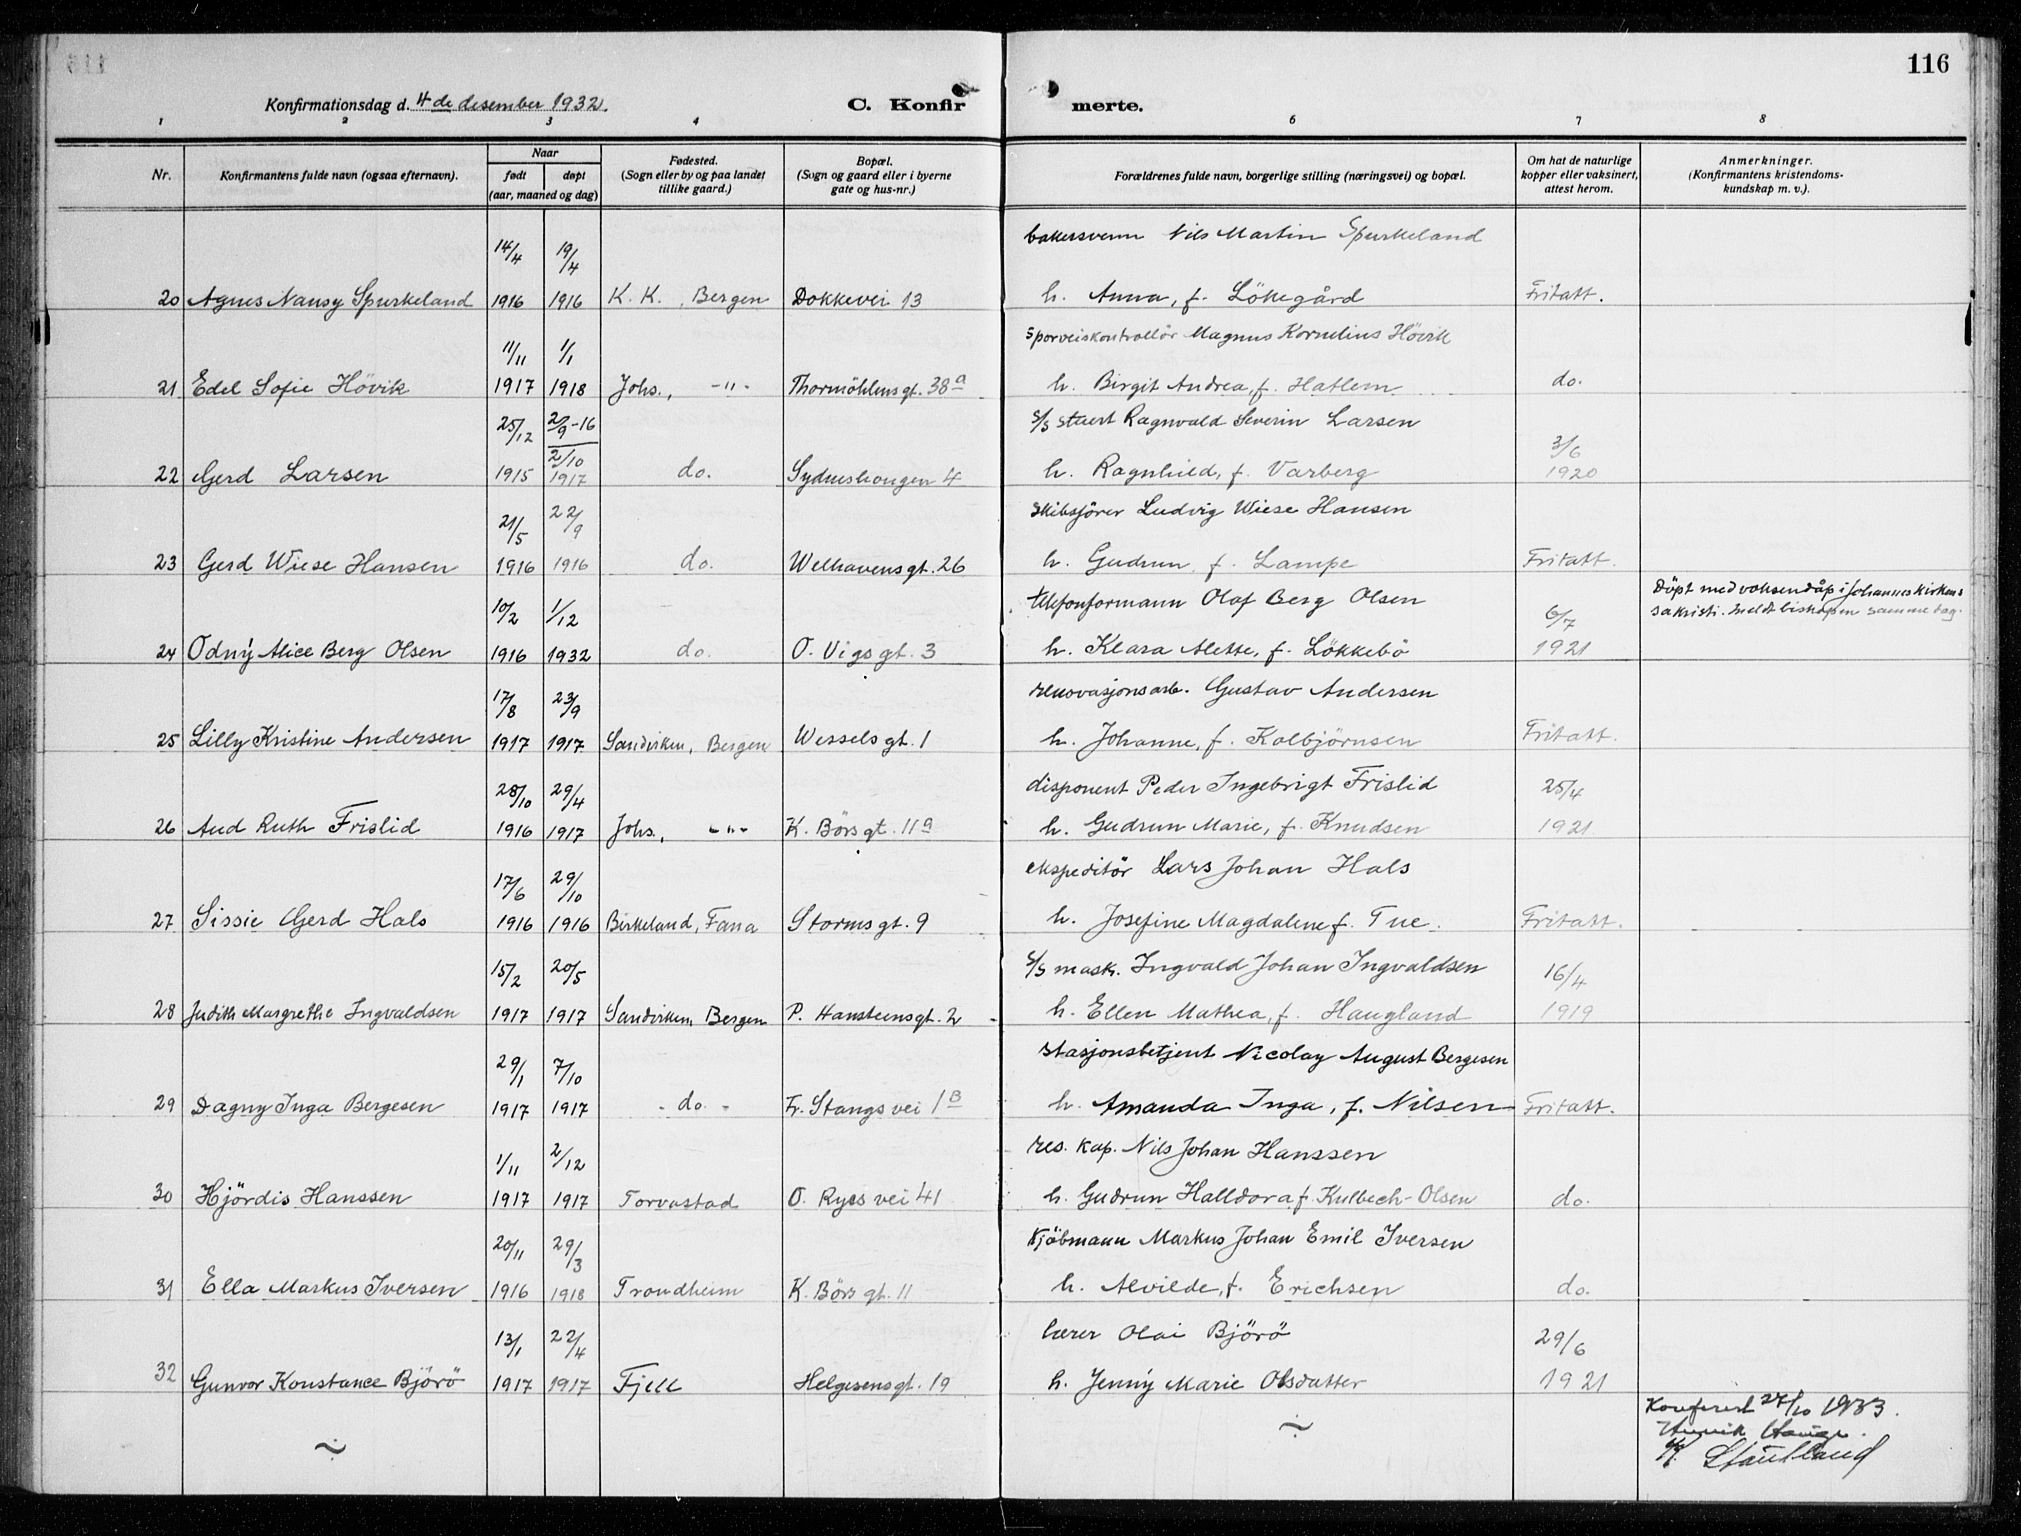 116
Konfirmationsdag d. 4de desember 1932. C. Konfir merte.
1 2 3 4 6 7 8
Nr. Konfirmantens fulde navn (ogsaa efternavn). Naar født døpt (aar, maaned og dag) Fødested. (Sogn eller by og paa landet tillike gaard.) Bopæl. (Sogn og gaard eller i byerne gate og hus-nr.) Forældrenes fulde navn, borgerlige stilling (næringsvei) og bopæl. Om hat de naturlige kopper eller vaksinert, attest herom. Anmerkninger. (Konfirmantens kristendoms- kundskap m. v.).
14/4 19/4 bakersvenn Nils Martin Spurkeland
20 Agnes Nansy Spurkeland 1916 1916 K. K., Bergen Dokkevei 13 h. Anna, f. Lökegård Fritatt.
11/11 1/1 Sporveiskontrollör Magnus Kornelius Hövik
21 Edel Sofie Hövik 1917 1918 Johs., -"- Thormöhlensgt. 38a h. Birgit Andrea, f. Hatlem do.
25/12 2/9-16 S/S stuert Ragnvald Severin Larsen
22 Gerd Larsen 1915 2/10 1917 do. Sydneshaugen 4 h. Ragnhild, f. Varberg 3/6 1920
21/5 22/9 Skibsförer Ludvig Wiese Hansen
23 Gerd Wiese Hansen 1916 1916 do. Welhavensgt. 26 h. Gudrun, f. Lampe Fritatt.
10/2 1/12 telefonformann Olaf Berg Olsen 6/7 Döpt med voksendåp i Johanneskirkens
sakristi. Meldt biskopen samme dag.
24 Odny Alice Berg Olsen 1916 1932 do. O. Vigsgt. 3 h. Klara Alette, f. Lökkebö 1921
17/8 23/9 renovasjonsarb. Gustav Andersen
25 Lilly Kristine Andersen 1917 1917 Sandviken, Bergen Wesselsgt. 1 h. Johanne, f. Kolbjörnsen Fritatt.
28/10 29/4 disponent Peder Ingebrigt Frislid 25/4
26 Aud Ruth Frislid 1916 1917 Johs., -"- K. Börsgt. 11a h. Gudrun Marie, f. Knudsen 1921
17/6 29/10 ekspeditör Lars Johan Hals
27 Sissie Gerd Hals 1916 1916 Birkeland, Fana Stormsgt. 9 h. Josefine Magdalene f. Tue. Fritatt.
15/2 20/5 S/S mask. Ingvald Johan Ingvaldsen 16/4
28 Judith Margrethe Ingvaldsen 1917 1917 Sandviken, Bergen P. Hansteensgt. 2 h. Ellen Mathea, f. Haugland 1919
29/1 7/10 stasjonsbetjent Nicolay August Bergesen
29 Dagny Inga Bergesen 1917 1917 - do. - Fr. Stangs vei 1B h. Amanda Inga, f. Nilsen Fritatt.
1/11 2/12 res. kap. Nils Johan Hanssen
30 Hjördis Hanssen 1917 1917 Torvastad O. Ryes vei 41 h. Gudrun Halldora f. Kulbech-Olsen do.
20/11 29/3 Kjöbmann Markus Johan Emil Iversen
31 Ella Markus Iversen 1916 1918 Trondheim K. Börsgt. 11 h. Alvilde, f. Erichsen do.
13/1 22/4 lærer Olai Björö 29/6
32 Gunvor Konstance Björö 1917 1917 Fjell Helgesensgt. 19 h. Jenny Marie Olsdatter 1921
Konferert 24/10 1933.